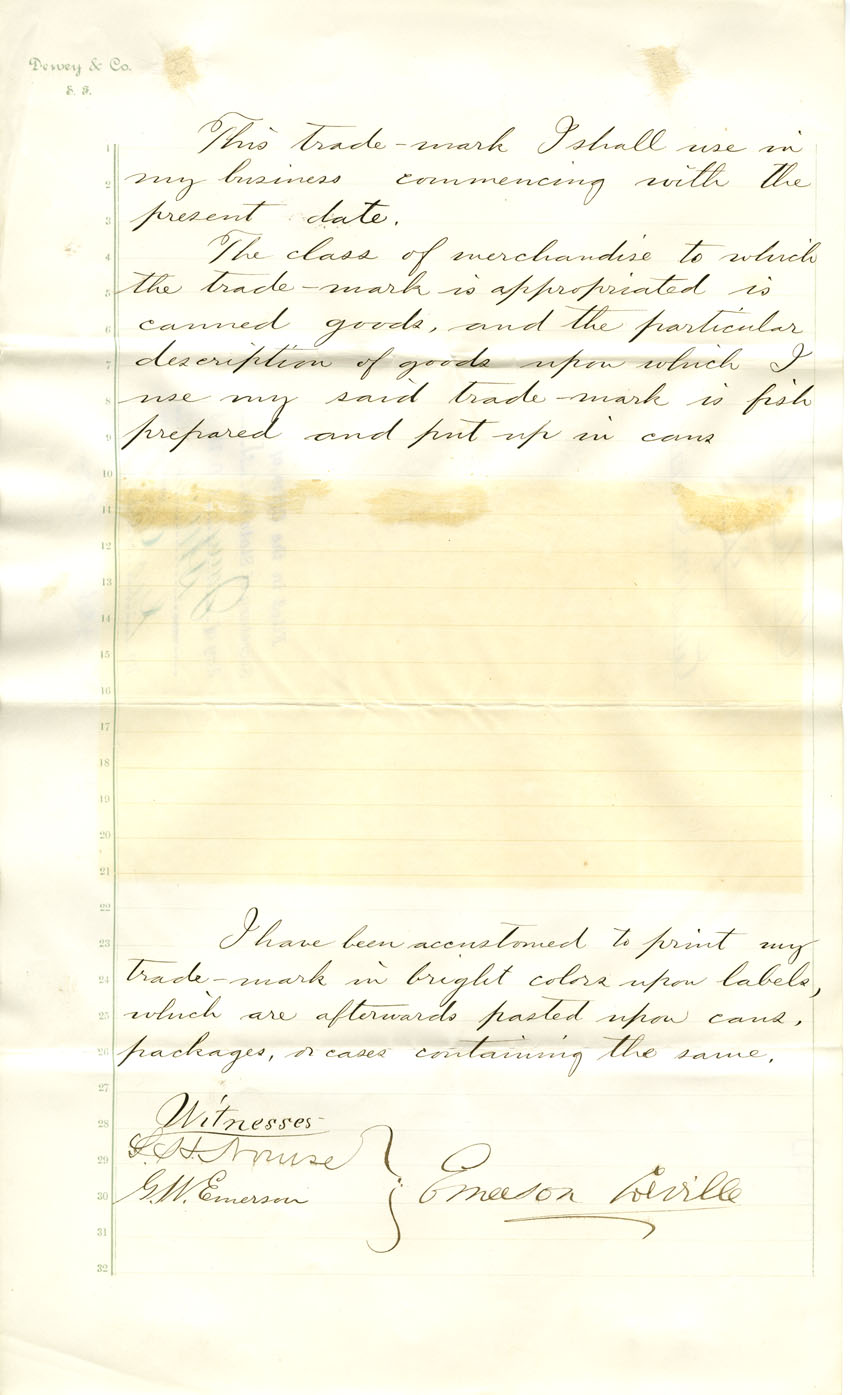 Dewey & Co.
S. F.
1 This trade-mark I shall use in
2 my business commencing with the
3 present date.
4 The class of merchandise to which
5 the trade-mark is appropriated is
6 canned goods, and the particular
7 description of goods upon which I
8 use my said trade-mark is fish
9 prepared and put up in cans
10
11
12
13
14
15
16
17
18
19
20
21
22
23 I have been accustomed to print my
24 trade-mark in bright colors upon labels,
25 which are afterwards pasted upon cans,
26 packages, or cases containing the same.
27
28 Witnesses
29 S. H. Nourse
30 G. W. Emerson Emerson
31
32